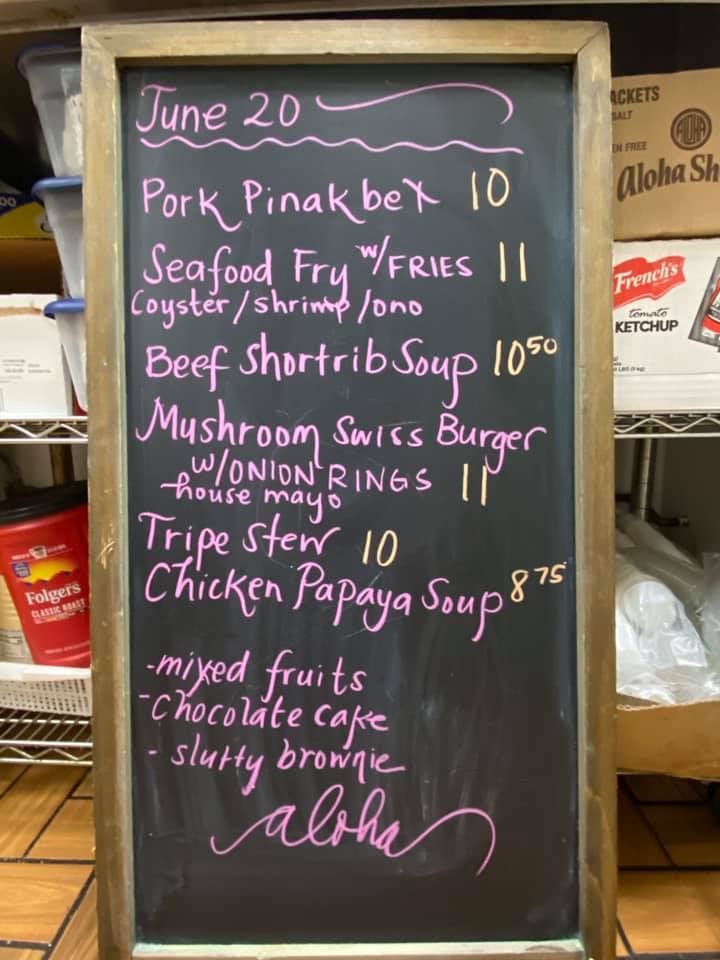 June 20
Pork Pinakbet 10
Seafood Fry w/FRIES 11
(oyster/shrimp/ono
Beef Shortrib Soup 10 50
Mushroom Swiss Burger
w/ONION RINGS 11
-house mayo
Tripe Stew 10
Chicken Papaya Soup 8 75
-mixed fruits
-Chocolate cake
- slutty brownie
aloha
ACKETS
SALT
EN FREE
ALOHA
Aloha Sh
French's
tomato
KETCHUP
Folgers
CLASSIC ROAST